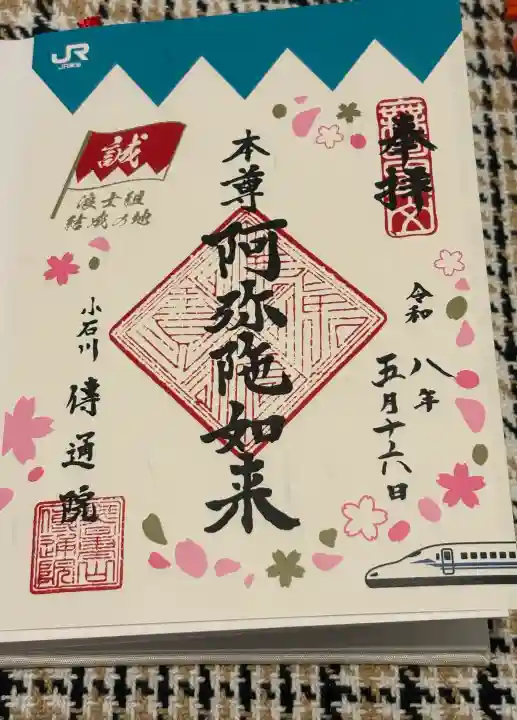 JR
JR東海
奉拝
令和八年
五月十六日
本尊
阿弥陀如来
誠
浪士組
結成の地
小石川
傳通院